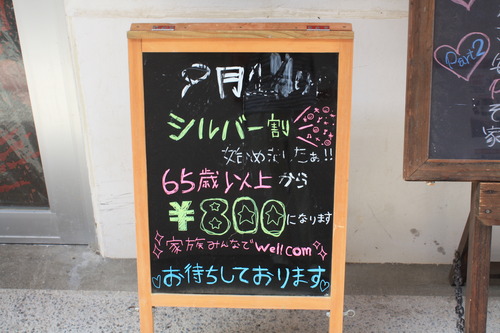 9月
シルバー割
始めましたぁ!!
65歳以上から
¥800になります
家族みんなでwellcom
お待ちしております
Part2